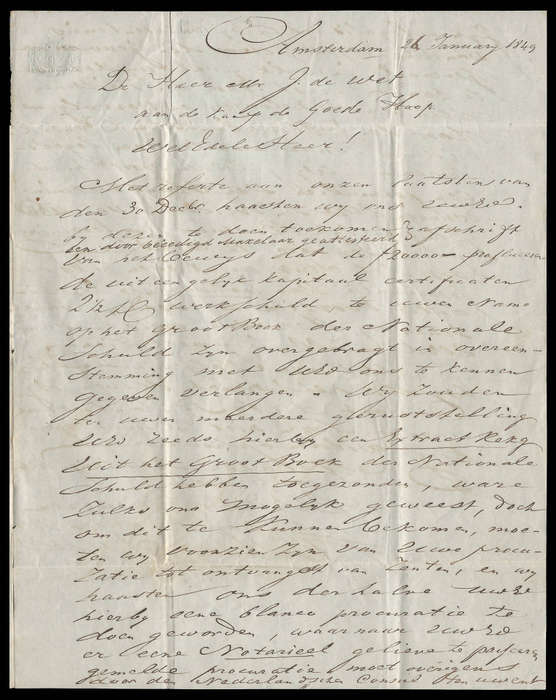 Amsterdam 26 January 1849
De Heer Mr J. de Wet
aan de Kaap de Goede Hoop
WelEdele Heer!
Met referte aan onzen laatsten van
den 30 Decbr, haasten wy ons UwEd.
by dezen te doen toekomen afschrift
een door beeedigd Makelaar geattesteerd
van het bewys dat de ƒ20000–
de uit een gelyk kapitaal certificaten
2½ pC werk. schuld, te uwen Name
op het Groot Boek der Nationale
Schuld zyn overgebragt in overeen-
stemming met UwEd ons te kennen
gegeven verlangen. Wy zouden
ter uwer meerdere geruststelling
UwEd reeds hierby een Extract Rekg
Uit het Groot Boek der Nationale
Schuld hebben toegezonden, ware
zulks ons mogelyk geweest, doch
om dit te kunnen bekomen, moe-
ten wy voorzien zyn van Uwe procu-
ratie tot ontvangst van Renten, en wy
haasten ons derhalve UwEd
hierby eene blanco procuratie te
doen geworden, waarnaar UwEd
er eene Notarieel gelieve te passeren
gemelde procuratie moet overigens
door den Nederlandschen Consul ten uwent